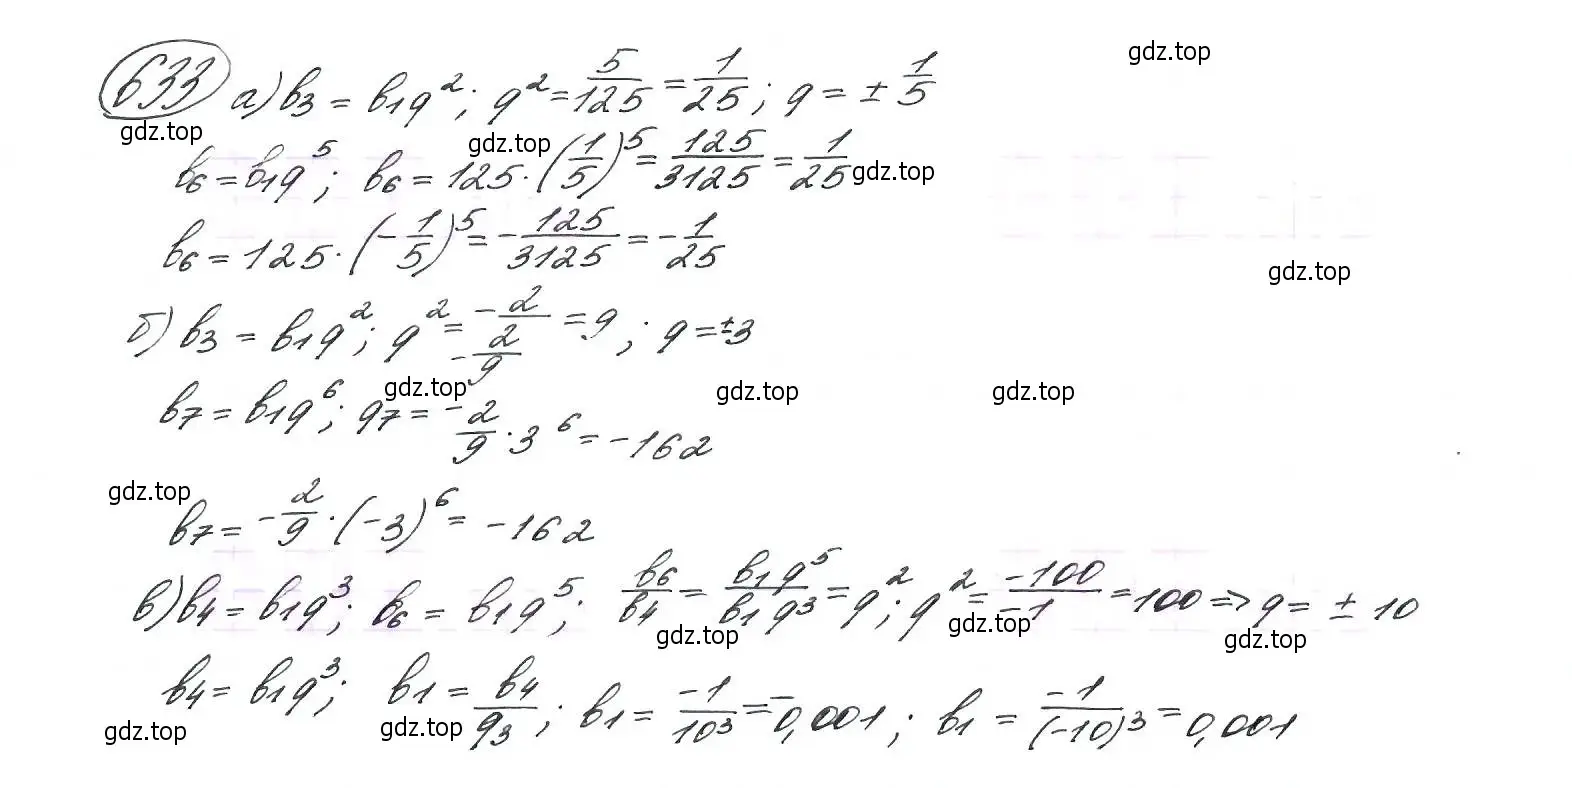 gdz.top
633 а) b₃ = b₁q²; q² = 5/125 = 1/25; q = ± 1/5
gdz.top gdz.top gdz.top
b₆ = b₁q⁵; b₆ = 125 · (1/5)⁵ = 125/3125 = 1/25
b₆ = 125 · (-1/5)⁵ = -125/3125 = -1/25
gdz.top
б) b₃ = b₁q²; q² = -2/(-2/9) = 9; q = ±3
gdz.top gdz.top gdz.top
b₇ = b₁q⁶; q₇ = -2/9 · 3⁶ = -162
gdz.top
b₇ = -2/9 · (-3)⁶ = -162
в) b₄ = b₁q³; b₆ = b₁q⁵; b₆/b₄ = b₁q⁵/b₁q³ = q²; q² = -100/-1 = 100 => q = ± 10
gdz.top gdz.top gdz.top
b₄ = b₁q³; b₁ = b₄/q₃; b₁ = -1/10³ = -0,001; b₁ = -1/(-10)³ = 0,001
gdz.top gdz.top